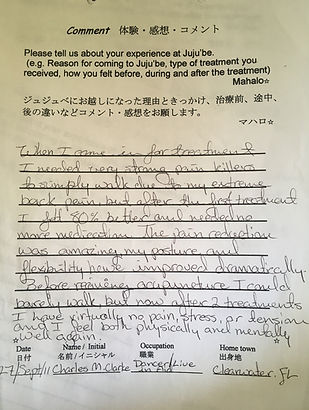 Comment 体験・感想・コメント
Please tell us about your experience at Juju'be.
(e.g. Reason for coming to Juju'be, type of treatment you
received, how you felt before, during and after the treatment)
Mahalo☆
ジュジュベにお越しになった理由ときっかけ、治療前、途中、
後の違いなどコメント・感想をお願します。
マハロ☆
When I came in for treatment
I needed very strong pain killers
to simply walk due to my extreme
back pain, but after the first treatment
I felt 80% better and needed no
more medication. The pain reduction
was amazing, my posture and
flexibility have improved dramatically.
Before receiving acupuncture I could
barely walk, but now after 2 treatments
I have virtually no pain, stress, or tension
and I feel both physically and mentally
well again.
Date Name / Initial Occupation Home town
日付 名前 / イニシャル 職業 出身地
27/Sept/11 Charles M. Clarke Dancer/Live Clearwater, FL